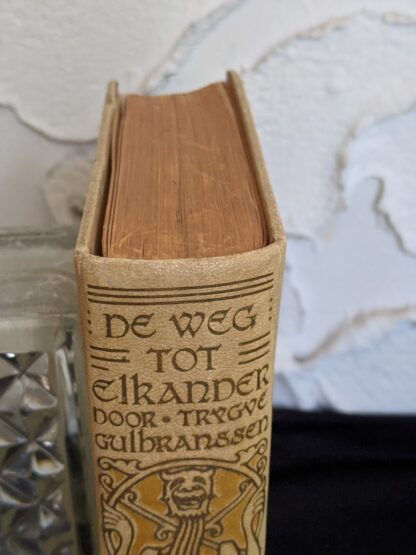 DE WEG
TOT
ELKANDER
DOOR · TRYGVE
GULBRANSSEN